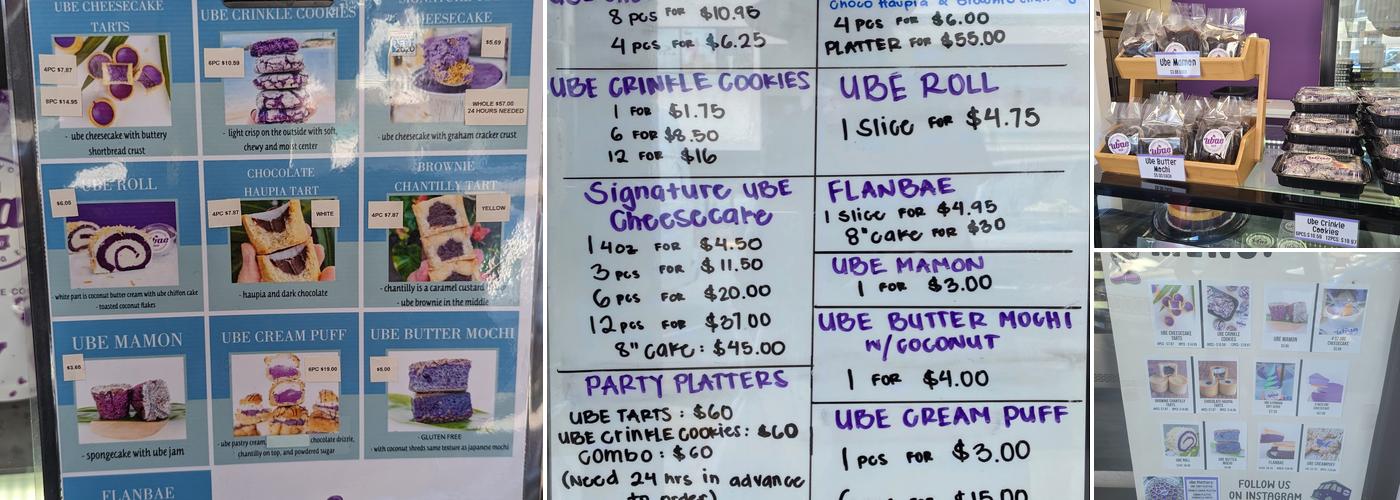 UBE CHEESECAKE
TARTS
4PC $7.87
8PC $14.95
- ube cheesecake with buttery
shortbread crust
UBE CRINKLE COOKIES
6PC $10.59
- light crisp on the outside with soft,
chewy and moist center
CHEESECAKE
$5.69
WHOLE $57.00
24 HOURS NEEDED
- ube cheesecake with graham cracker crust
UBE ROLL
$6.05
white part is coconut butter cream with ube chiffon cake
- toasted coconut flakes
CHOCOLATE
HAUPIA TART
4PC $7.87
WHITE
- haupia and dark chocolate
BROWNIE
CHANTILLY TART
4PC $7.87
YELLOW
- chantilly is a caramel custard
- ube brownie in the middle
UBE MAMON
$3.65
- spongecake with ube jam
UBE CREAM PUFF
6PC $19.00
- ube pastry cream,
chocolate drizzle,
chantilly on top, and powdered sugar
UBE BUTTER MOCHI
$5.00
- GLUTEN FREE
- with coconut shreds same texture as japanese mochi
FLANBAE
8 pcs FOR $10.95
4 pcs FOR $6.25
UBE CRINKLE COOKIES
1 FOR $1.75
6 FOR $8.50
12 FOR $16
Signature UBE
Cheesecake
1 4oz FOR $4.50
3 pcs FOR $11.50
6 pcs FOR $20.00
12 pcs FOR $37.00
8" cake: $45.00
PARTY PLATTERS
UBE TARTS: $60
UBE CrinkLE cookies: $60
combo: $60
(Need 24 hrs in advance
to order)
4 pcs FOR $6.00
PLATTER FOR $55.00
UBE ROLL
1 Slice FOR $4.75
FLANBAE
1 Slice FOR $4.95
8" cake FOR $30
UBE MAMON
1 FOR $3.00
UBE BUTTER MOCHI
w/COCONUT
1 FOR $4.00
UBE CREAM PUFF
1 pcs FOR $3.00
$15.00
Ube Mamon
ubae
Ube Butter
Mochi
$5.00 EACH
Ube Crinkle
Cookies
6PCS $10.59 12PCS $19.97
MENU:
UBE CHEESECAKE
TARTS
UBE CRINKLE
COOKIES
UBE MAMON
CHEESECAKE
BROWNIE CHANTILLY
TARTS
CHOCOLATE HAUPIA
TARTS
UBE ROLL
UBE BUTTER
MOCHI
FLANBAE
UBE CREAMPUFF
FOLLOW US
ON INSTAGRAM